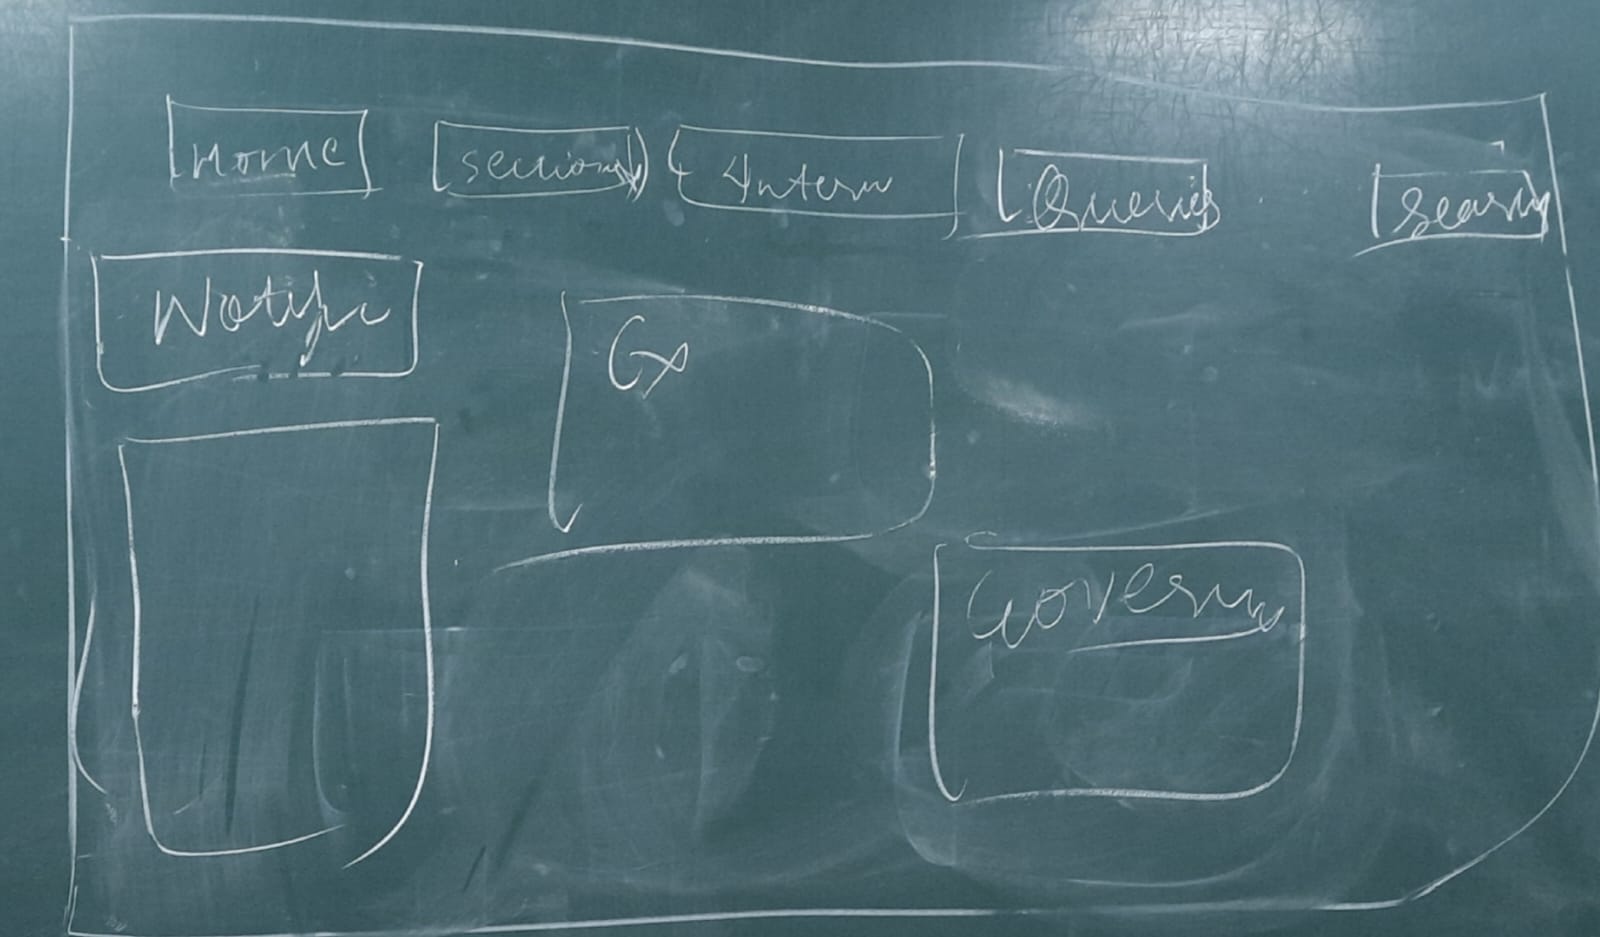 Home sections Intern Queries Search
Notific
Govern